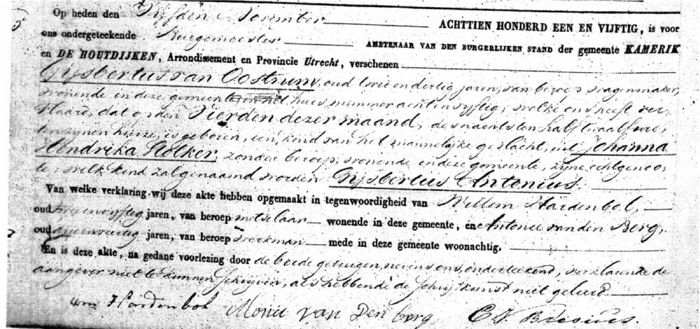 Op heden den Vijfden November ACHTTIEN HONDERD EEN EN VIJFTIG, is voor
ons ondergeteekende Burgemeester AMBTENAAR VAN DEN BURGERLIJKEN STAND der gemeente KAMERIK
en DE HOUTDIJKEN, Arrondissement en Provincie Utrecht, verschenen
Gijsbertus van Oostrum, oud twee en dertig jaren, van beroep wagenmaker,
wonende in deze gemeente in het huis nummer acht en vijftig, welke ons heeft ver-
klaard, dat op den Vierden dezer maand, des nachts ten half twaalf ure
ten zijnen huize, is geboren, een kind van het mannelijke geslacht, uit Johanna
Hendrika Kolker, zonder beroep, wonende in deze gemeente, zijne echtgenoo-
te, welk kind zal genaamd worden Gijsbertus Antonius.
Van welke verklaring wij deze akte hebben opgemaakt in tegenwoordigheid van Willem Hardenbol,
oud vijftig jaren, van beroep metselaar wonende in deze gemeente, en Antonie van den Berg,
oud veertig jaren, van beroep mede in deze gemeente woonachtig.
En is deze akte, na gedane voorlezing door de beide getuigen, nevens ons, onderteekend, verklarende de
aangever niet te kunnen schrijven, als hebbende de schrijfkunst niet geleerd.
Wm Hardenbol Antonie van Den berg